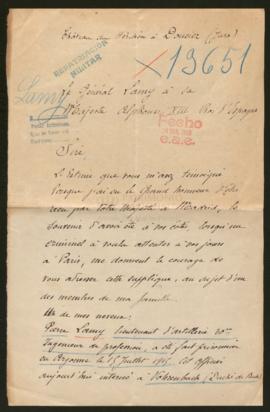 Château du Vernois à Doucier (Jura)
REPATRIACIÓN
MILITAR
13651
Lamy
Le Général Lamy à Sa
Majesté Alphonse XIII Roi d'Espagne
Fecho
e.a.e.
Sire,
L'estime que vous m'avez témoigné
lorsque j'ai eu le Grand honneur d'être
reçu par votre Majesté à Madrid, le
souvenir d'avoir été à vos côtés lorsqu'un
criminel a voulu attenter à vos jours
à Paris, me donnent le courage de
vous adresser cette supplique, au sujet d'un
des membres de ma famille.
Un de mes neveux:
Pierre Lamy lieutenant d'artillerie
Ingénieur de profession, a été fait prisonnier
en Argonne le 15 Juillet 1915. Cet officier
aujourd'hui interné à Vöhrenbach (Duché de Bade)